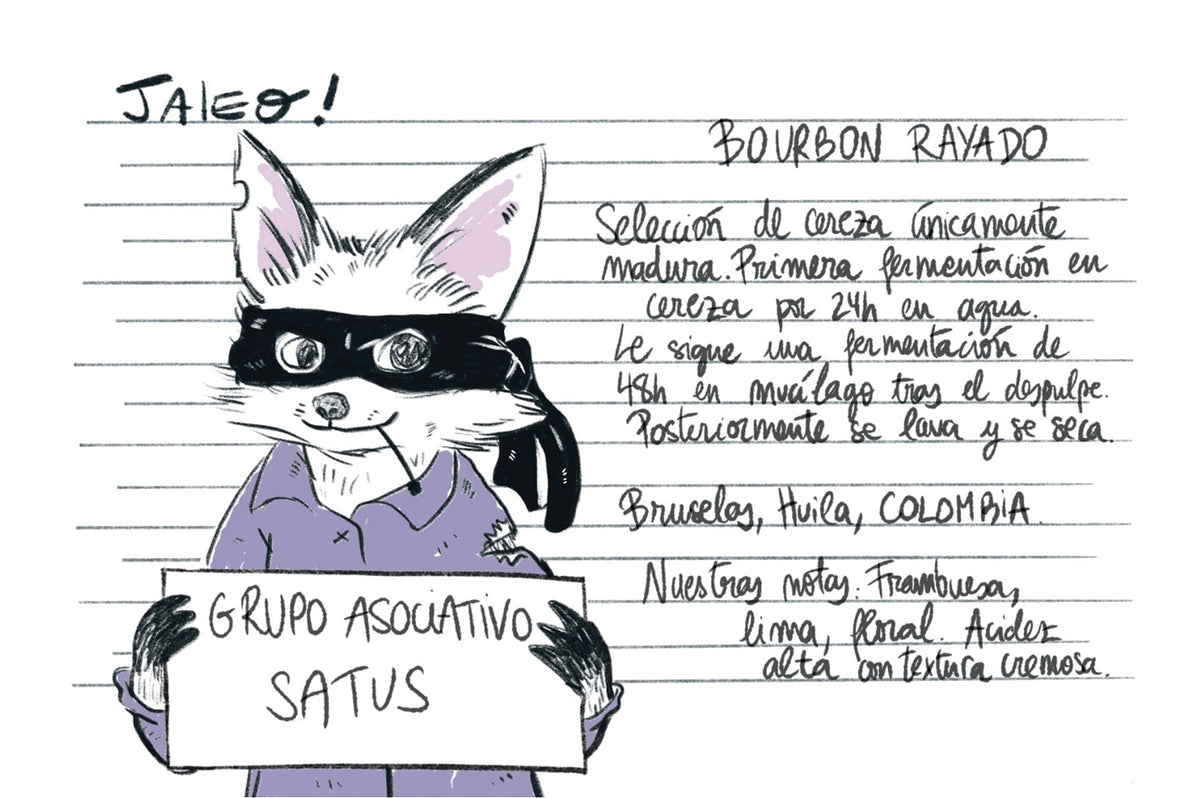 JALEO!
BOURBON RAYADO
Selección de cereza únicamente
madura. Primera fermentación en
cereza por 24h en agua.
Le sigue una fermentación de
48h en mucílago tras el despulpe.
Posteriormente se lava y se seca.
Bruselas, Huila, COLOMBIA.
Nuestras notas: Frambuesa,
lima, floral. Acidez
alta con textura cremosa.
GRUPO ASOCIATIVO
SATUS